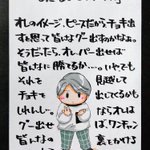 オレのイメージ、ピースだからチョキ出
すと思って皆んなグー出すのかなぁ。
そうだったら、オレ、パー出せば
皆んなに勝てるか…。いやでも
それを 見越して
チョキを 出してくるかも
しれんしな。 ならオレは
グー出せ ば、ワンチャン
皆んなの 裏をかける